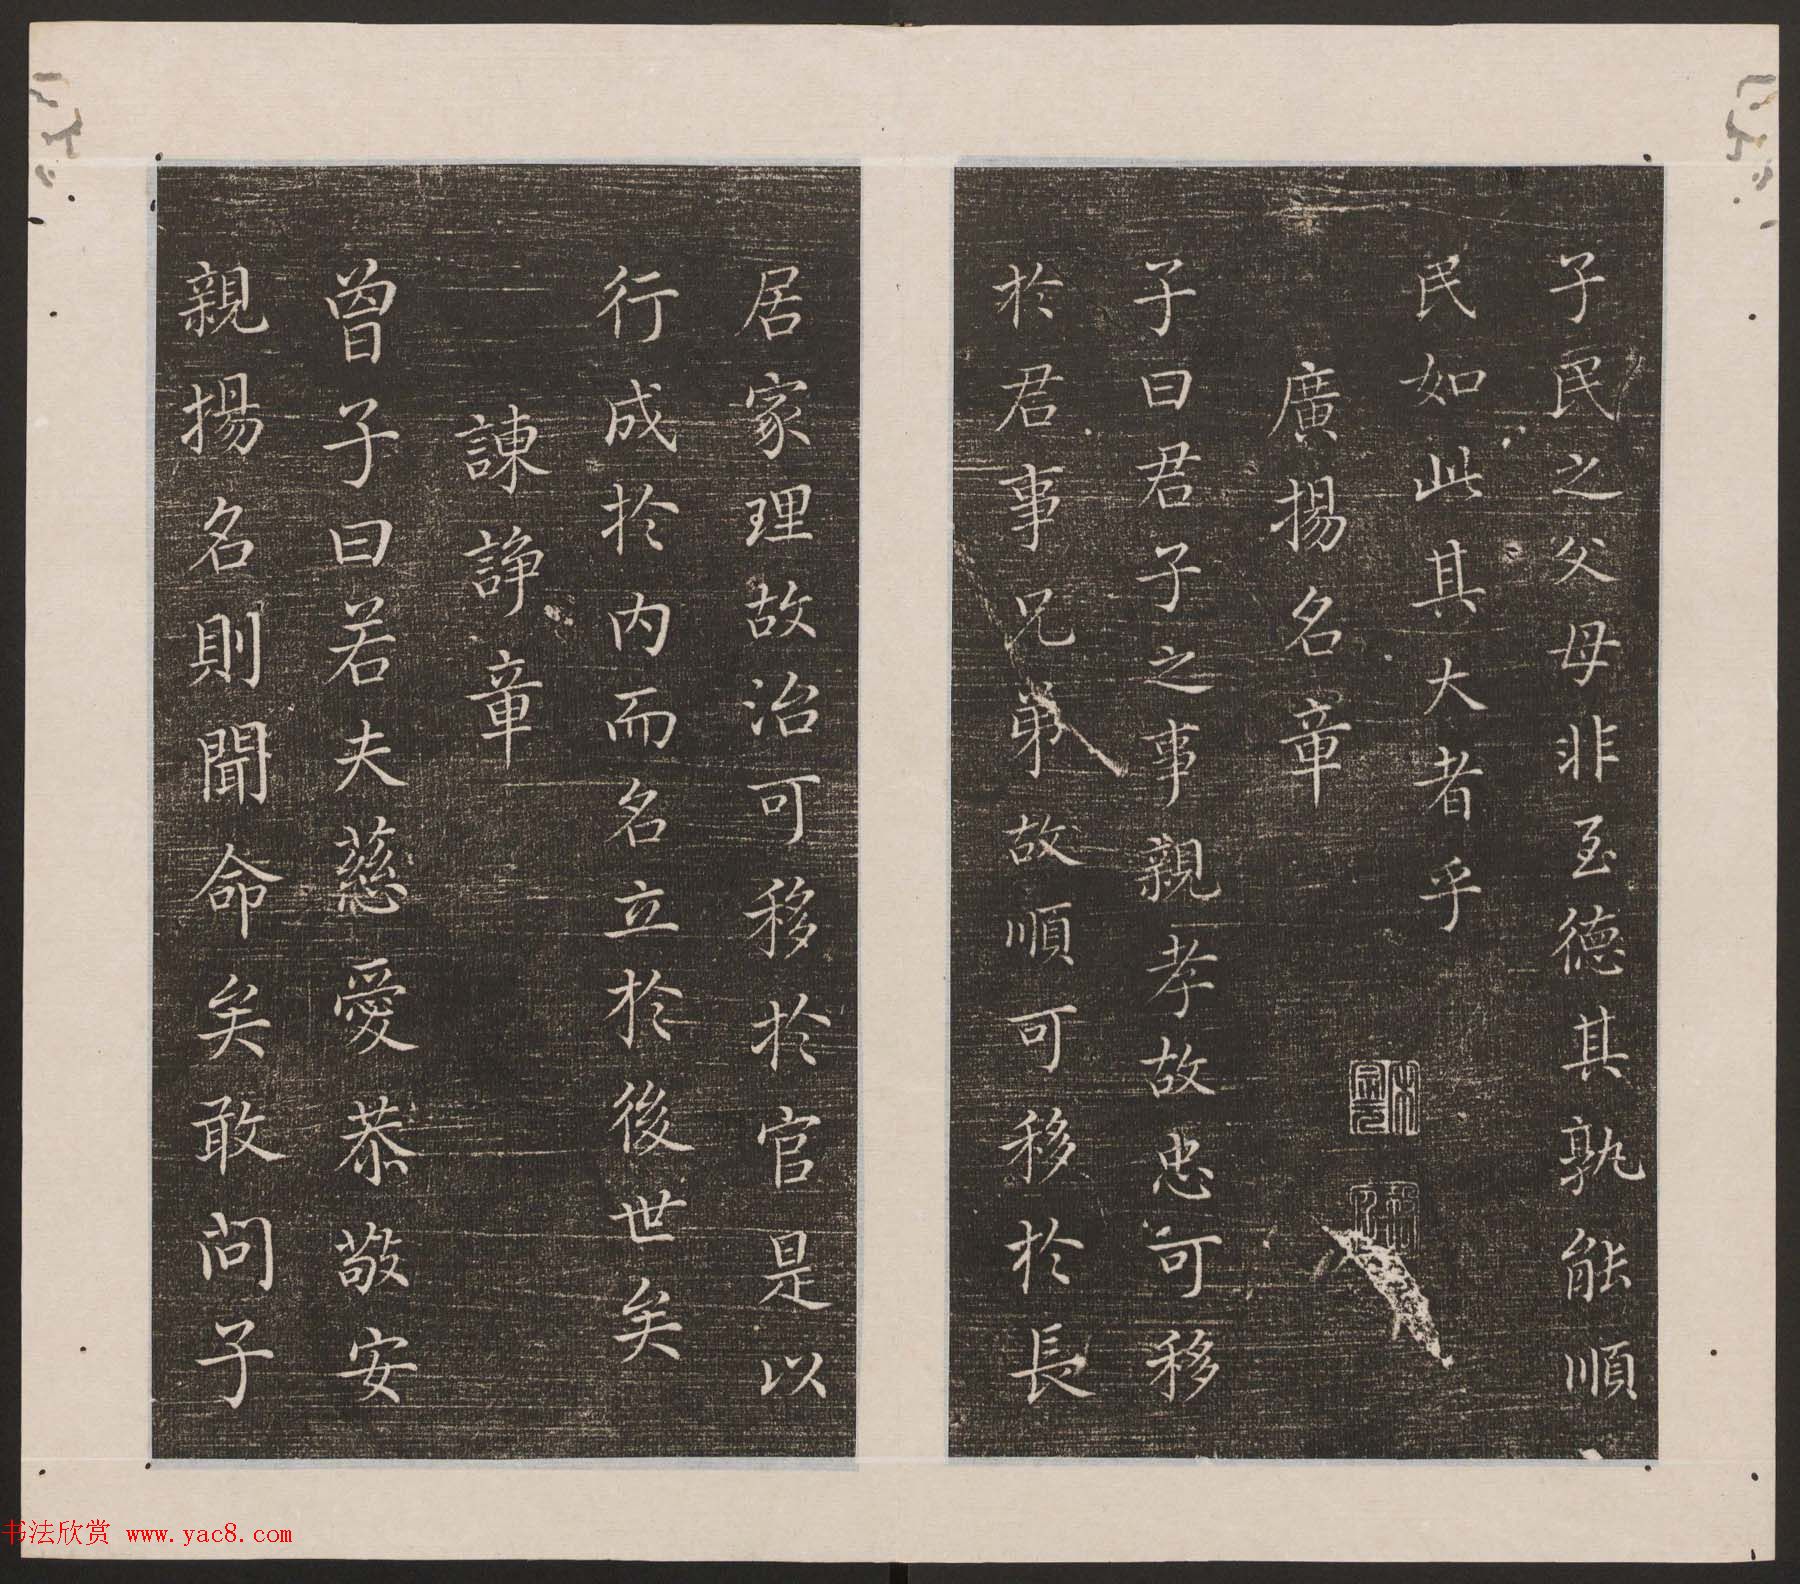 子民之父母非至德其孰能順
民如此其大者乎
廣揚名章
子曰君子之事親孝故忠可移
於君事兄弟故順可移於長
居家理故治可移於官是以
行成於內而名立於後世矣
諫諍章
曾子曰若夫慈愛恭敬安
親揚名則聞命矣敢問子
书法欣赏 www.yac8.com